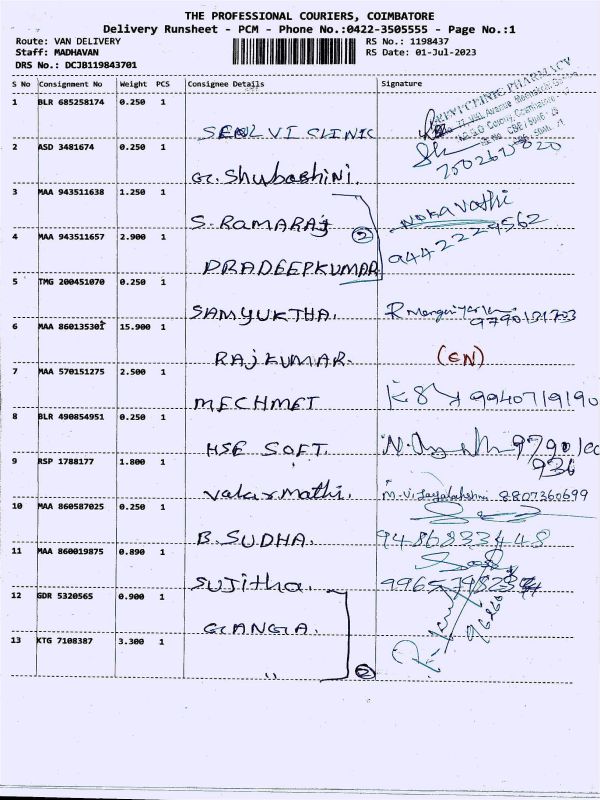 THE PROFESSIONAL COURIERS, COIMBATORE
Delivery Runsheet - PCM - Phone No.:0422-3505555 - Page No.:1
Route: VAN DELIVERY RS No.: 1198437
Staff: MADHAVAN RS Date: 01-Jul-2023
DRS No.: DCJB119843701
S No Consignment No Weight PCS Consignee Details Signature
1 BLR 685258174 0.250 1 SELVI CLINIC
2 ASD 3481674 0.250 1 G. Shubashini.
3 MAA 943511638 1.250 1 S. RAMARAJ
4 MAA 943511657 2.900 1 PRADEEPKUMAR 2 9442229562
5 TMG 200451070 0.250 1 SAMYUKTHA.
6 MAA 860135301 15.900 1 RAJKUMAR. (EN)
7 MAA 570151275 2.500 1 MECHMET 9940719190
8 BLR 490854951 0.250 1 HSE SOFT.
9 RSP 1788177 1.800 1 Valarmathi. 8807360699
10 MAA 860587025 0.250 1 B. SUDHA. 9486833448
11 MAA 860019875 0.890 1 Sujitha.
12 GDR 5320565 0.900 1 GANGA.
13 KTG 7108387 3.300 1 " 2